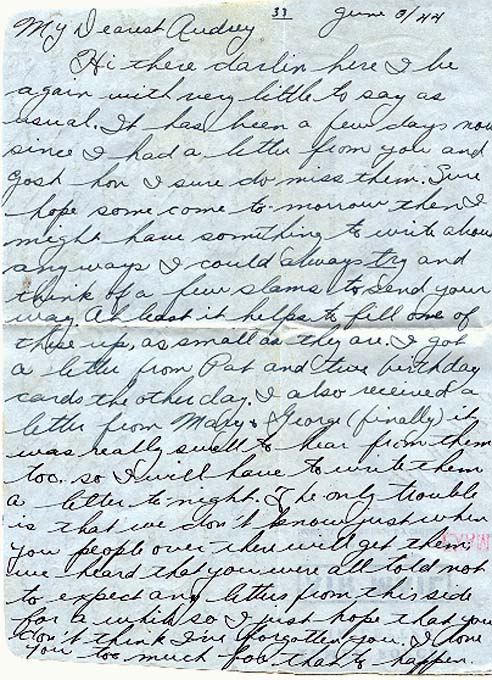 33
June 3/44
My Dearest Audrey
Hi there darlin here I be
again with very little to say as
usual. It has been a few days now
since I had a letter from you and
gosh hon I sure do miss them. Sure
hope some come to-morrow then I
might have something to write about
any ways I could always try and
think of a few slams to send your
way. At least it helps to fill one of
these up, as small as they are. I got
a letter from Pat and two birthday
cards the other day. I also received a
letter from Mary & George (finally) it
was really swell to hear from them
too. so I will have to write them
a letter to-night. The only trouble
is that we don't know just when
you people over there will get them,
we heard that you were all told not
to expect any letters from this side
for a while so I just hope that you
don't think I've forgotten you. I love
you too much for that to happen.
AIR MAIL